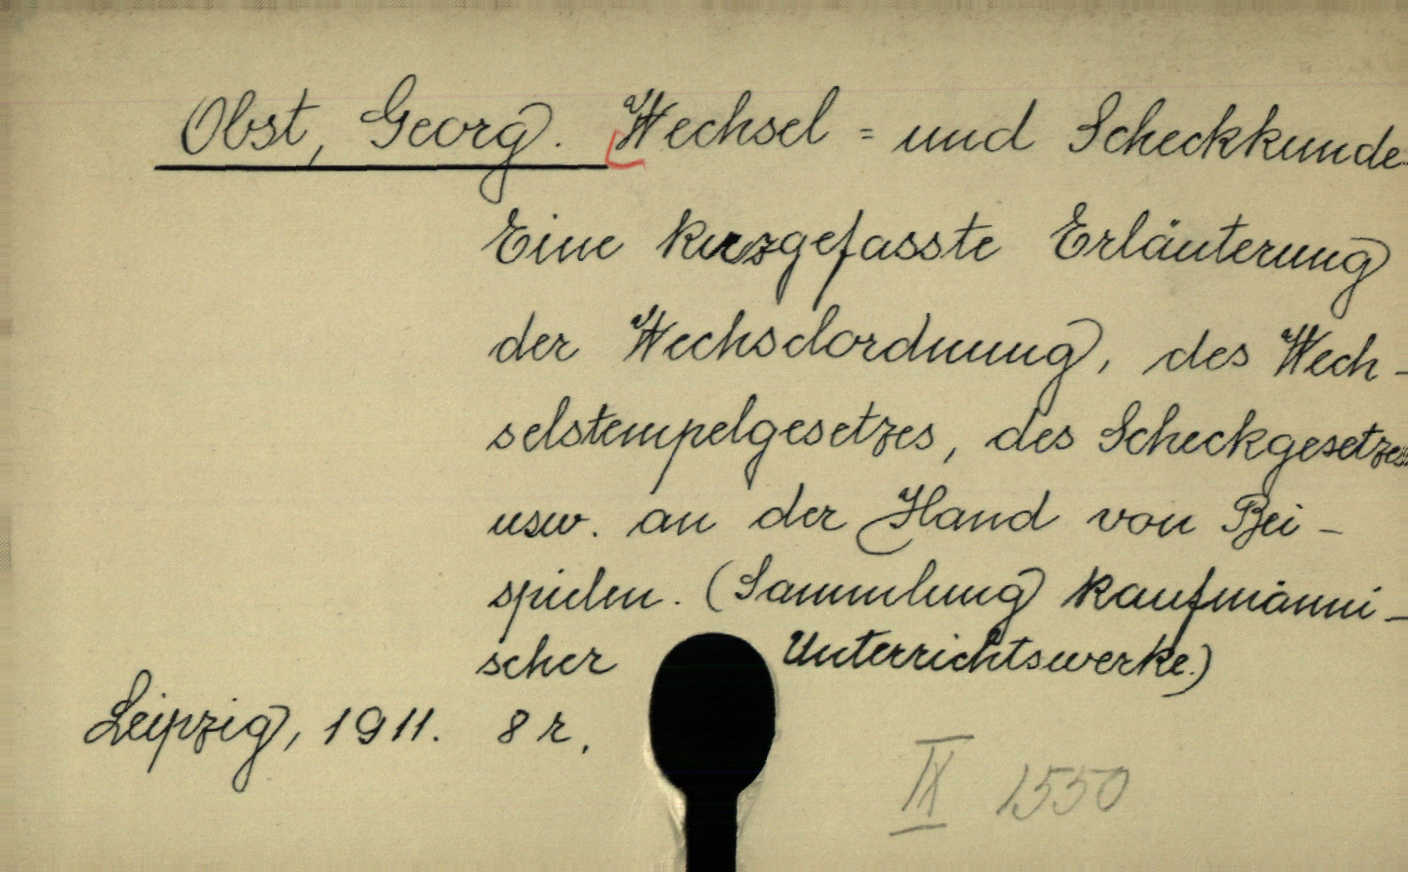 Obst, Georg. Wechsel = und Scheckkunde
Eine kurzgefasste Erläuterung
der Wechselordnung, des Wech-
selstempelgesetzes, des Scheckgesetzes
usw. an der Hand von Bei-
spielen. (Sammlung kaufmänni-
scher Unterrichtswerke.)
Leipzig, 1911. 8 r.
IX 1550